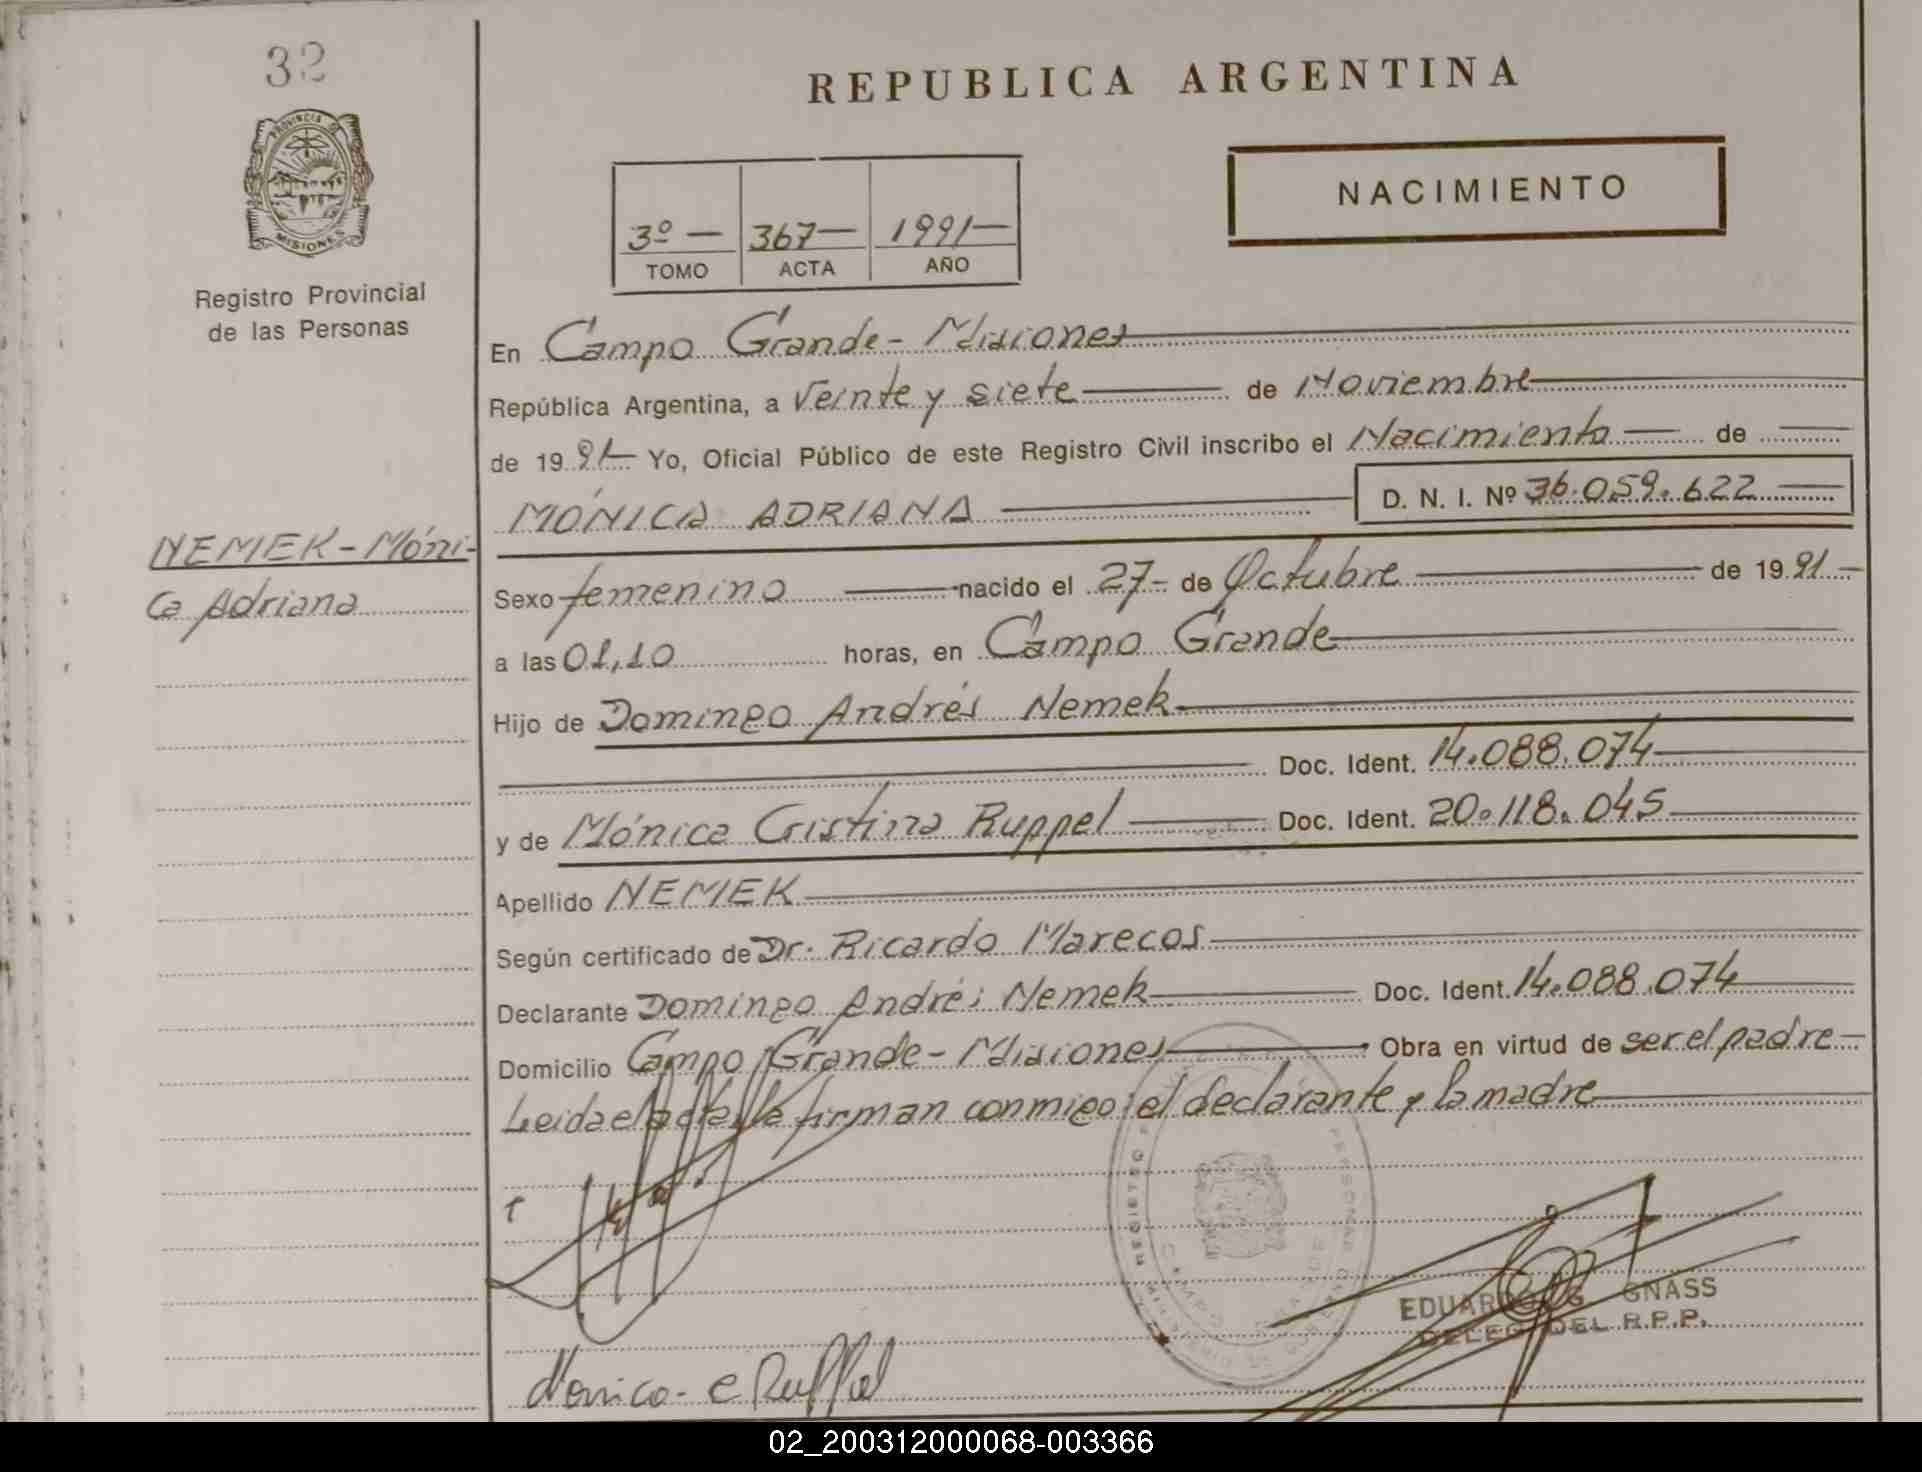 32
PROVINCIA DE
MISIONES
Registro Provincial
de las Personas
NEMEK - Móni-
ca Adriana
REPUBLICA ARGENTINA
NACIMIENTO
3º — 367 — 1991 —
TOMO ACTA AÑO
En Campo Grande - Misiones
República Argentina, a Veinte y siete de Noviembre
de 1991 Yo, Oficial Público de este Registro Civil inscribo el Nacimiento de
MÓNICA ADRIANA D. N. I. Nº 36.059.622
Sexo femenino nacido el 27 de Octubre de 1991
a las 01,10 horas, en Campo Grande
Hijo de Domingo Andrés Nemek
Doc. Ident. 14.088.074
y de Mónica Cristina Ruppel Doc. Ident. 20.118.045
Apellido NEMEK
Según certificado de Dr. Ricardo Marecos
Declarante Domingo Andrés Nemek Doc. Ident. 14.088.074
Domicilio Campo Grande - Misiones Obra en virtud de ser el padre
Leida el acta la firman conmigo el declarante y la madre
Monica C Ruppel
EDUARDO GNASS
DELEG. DEL R.P.P.
02_200312000068-003366